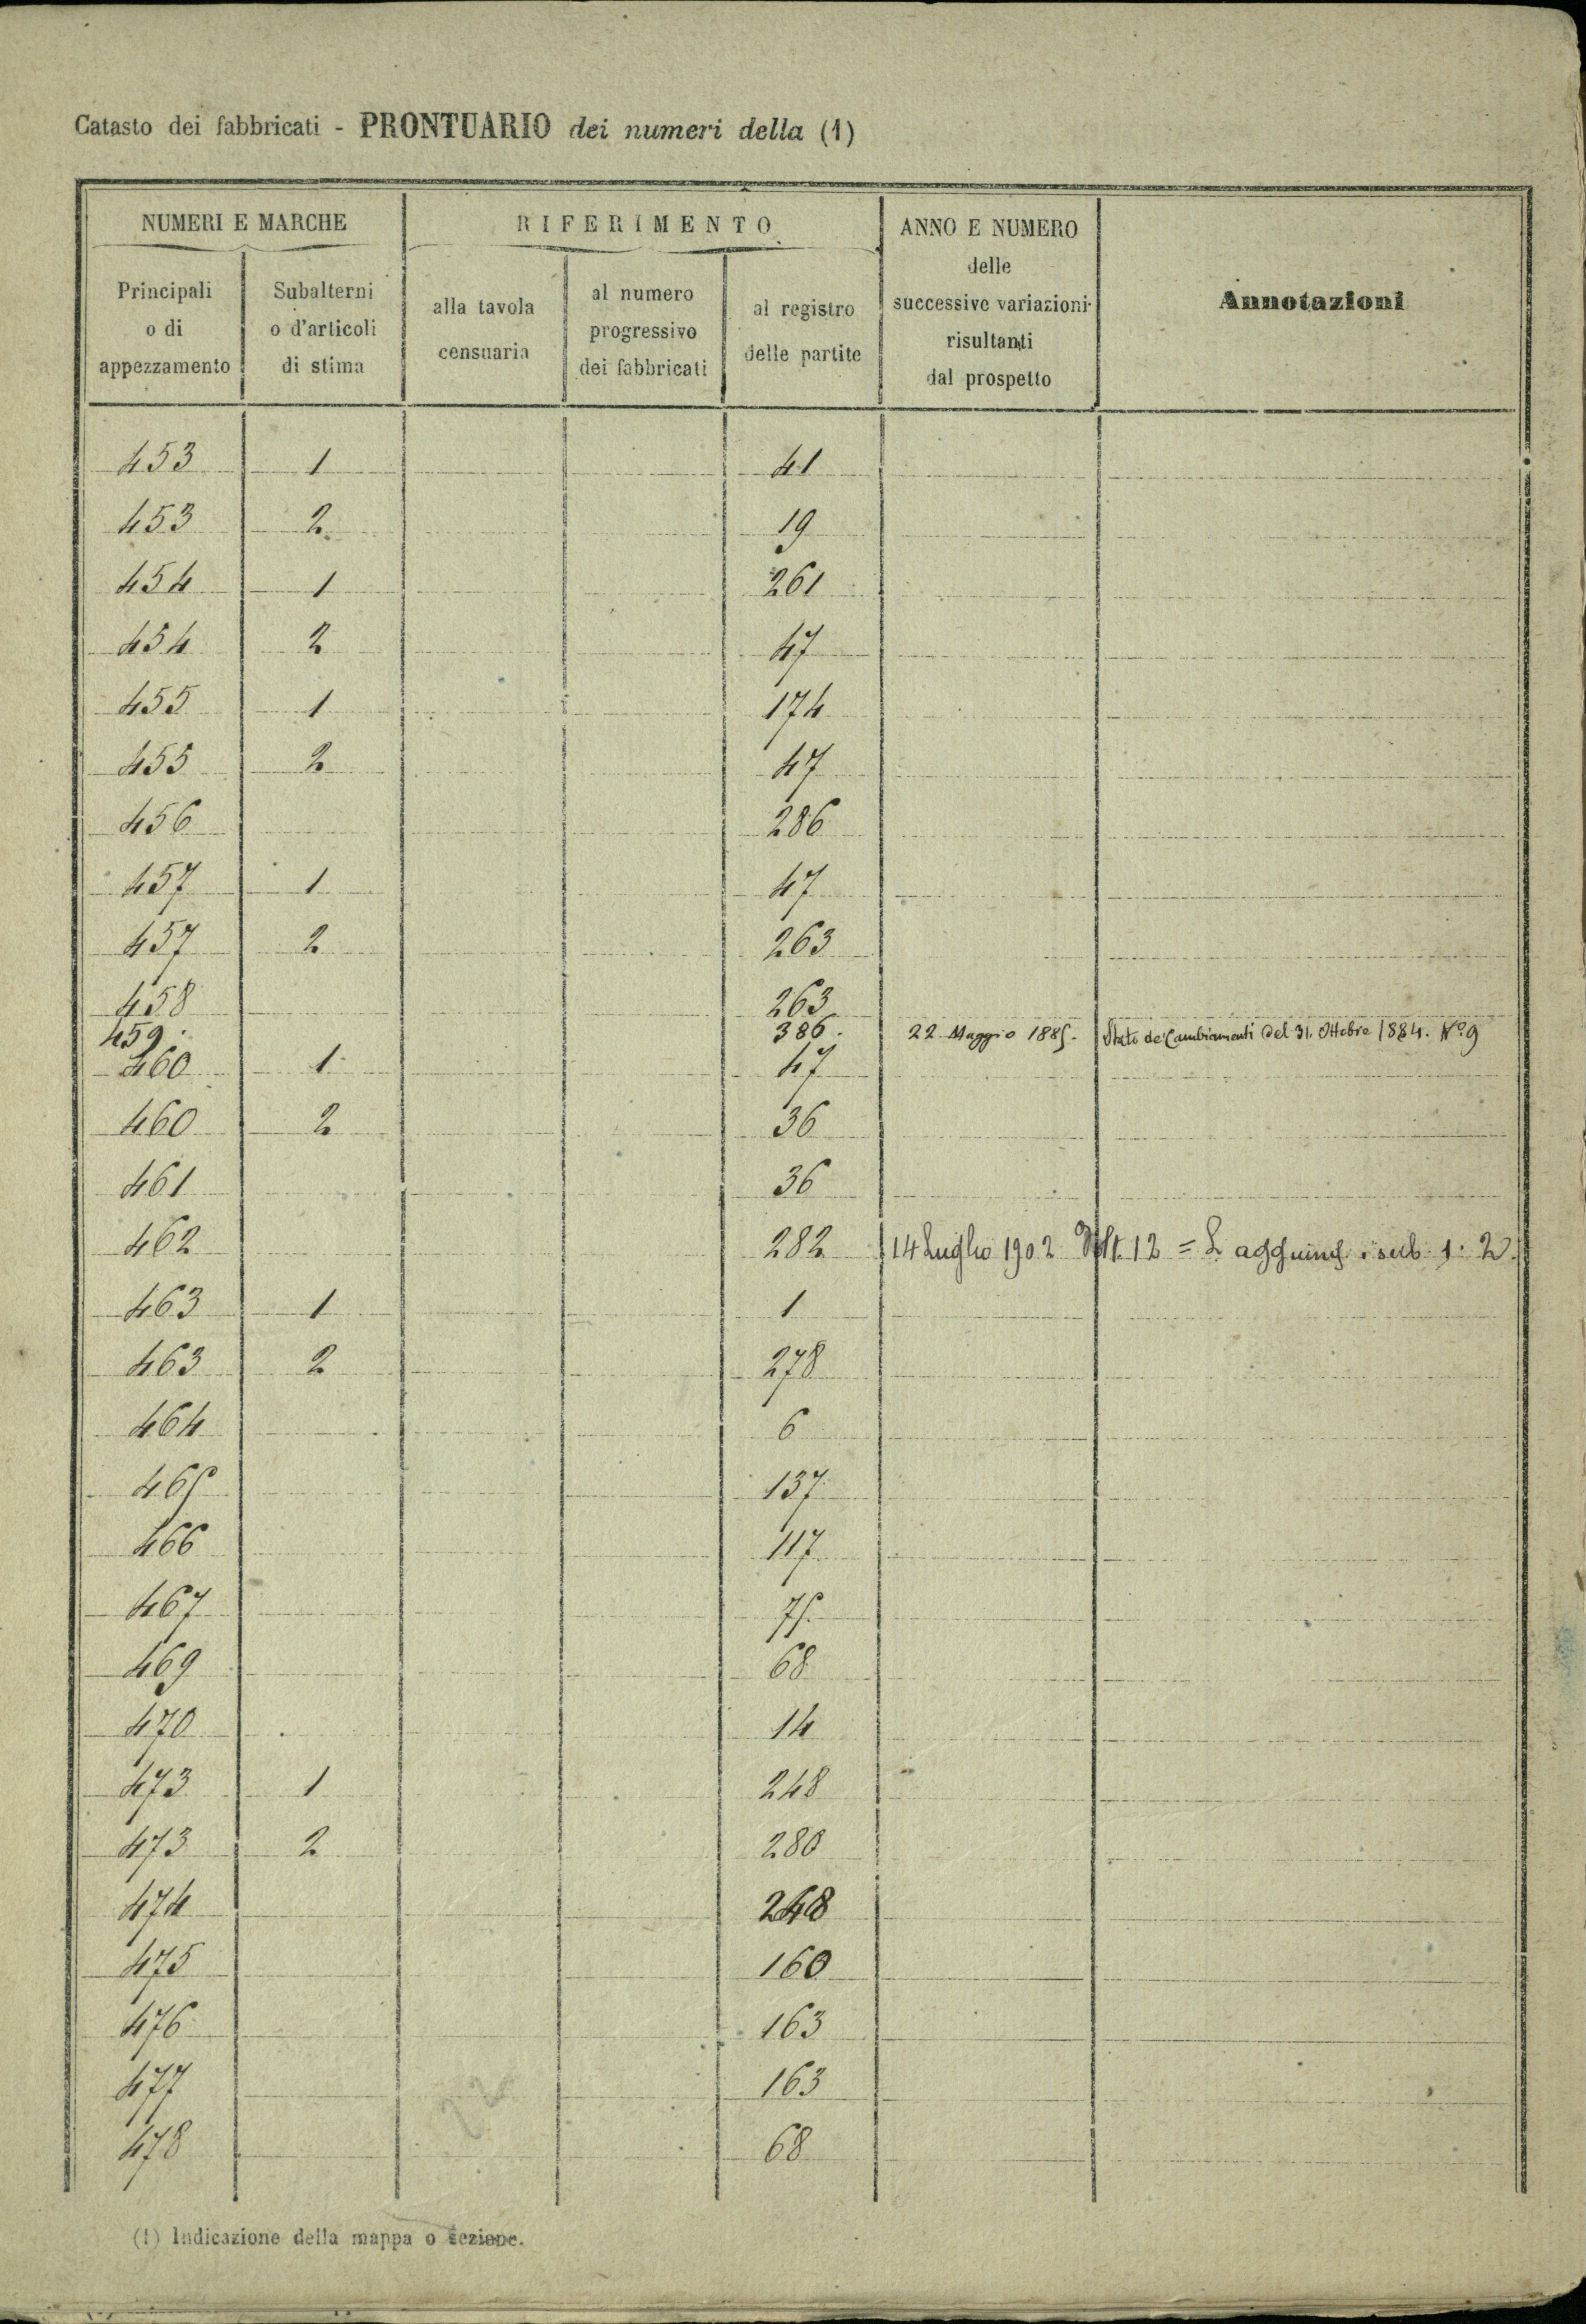 Catasto dei fabbricati - PRONTUARIO dei numeri della (1)
NUMERI E MARCHE
RIFERIMENTO
ANNO E NUMERO
delle
successive variazioni
risultanti
dal prospetto
Annotazioni
Principali
o di
appezzamento
Subalterni
o d'articoli
di stima
alla tavola
censuaria
al numero
progressivo
dei fabbricati
al registro
delle partite
453 1 41
453 2 19
454 1 261
454 2 47
455 1 174
455 2 47
456 286
457 1 47
457 2 263
458 263
459. 386. 22 Maggio 1885. Stato de' Cambiamenti del 31. Ottobre 1884. Nº 9
460 1 47
460 2 36
461 36
462 282 14 Luglio 1902 12 = aggiung. i sub 1. 2.
463 1 1
463 2 278
464 6
465 137
466 117
467 75.
469 68
470 14
473 1 248
473 2 280
474 248
475 160
476 163
477 163
478 68
(1) Indicazione della mappa o sezione.